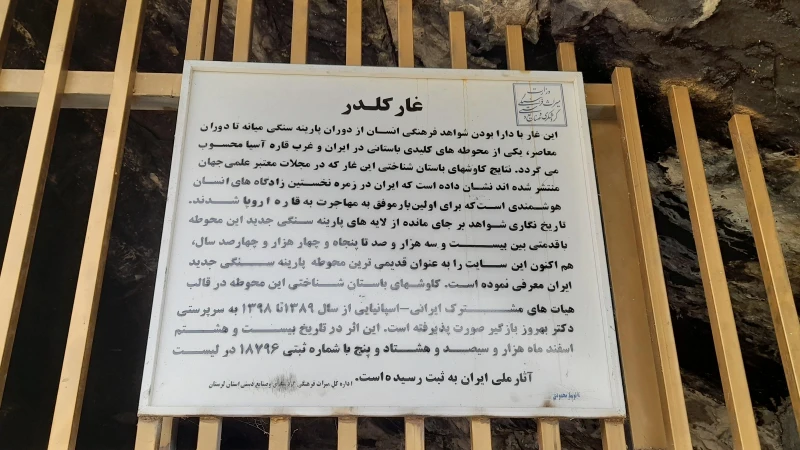 غار کلدر
وزارت
میراث فرهنگی
این غار با دارا بودن شواهد فرهنگی انسان از دوران پارینه سنگی میانه تا دوران
معاصر، یکی از محوطه های کلیدی باستانی در ایران و غرب قاره آسیا محسوب
می گردد. نتایج کاوشهای باستان شناختی این غار که در مجلات معتبر علمی جهان
منتشر شده اند نشان داده است که ایران در زمره نخستین زادگاه های انسان
هوشمندی است که برای اولین بار موفق به مهاجرت به قاره اروپا شدند.
تاریخ نگاری شواهد بر جای مانده از لایه های پارینه سنگی جدید این محوطه
باقدمتی بین بیست و سه هزار و صد تا پنجاه و چهار هزار و چهارصد سال،
هم اکنون این سایت را به عنوان قدیمی ترین محوطه پارینه سنگی جدید
ایران معرفی نموده است. کاوشهای باستان شناختی این محوطه در قالب
هیات های مشترک ایرانی-اسپانیایی از سال ۱۳۸۹ تا ۱۳۹۸ به سرپرستی
دکتر بهروز بازگیر صورت پذیرفته است. این اثر در تاریخ بیست و هشتم
اسفند ماه هزار و سیصد و هشتاد و پنج با شماره ثبتی ۱۸۷۹۶ در لیست
آثار ملی ایران به ثبت رسیده است.
اداره کل میراث فرهنگی گردشگری وصنایع دستی استان لرستان